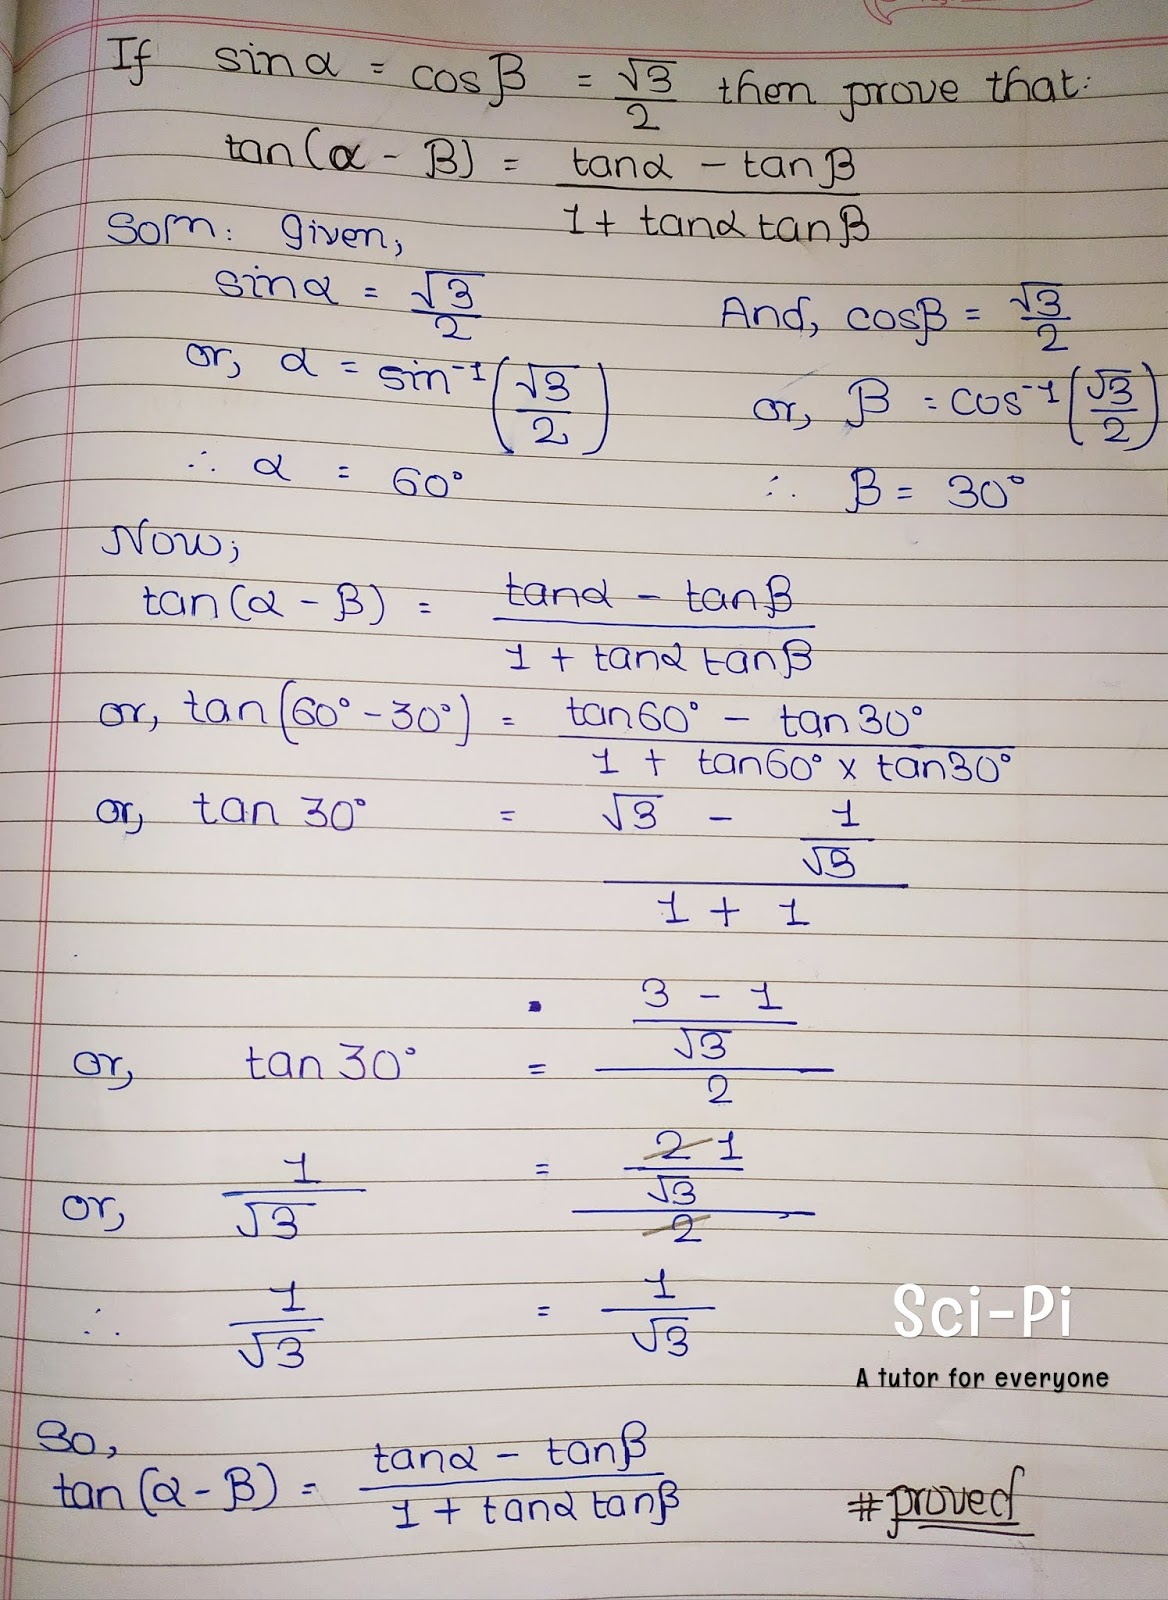 If sinα = cosβ = √3/2 then prove that:
tan(α - β) = (tanα - tanβ)/(1 + tanα tanβ)
Soln: Given,
sinα = √3/2 And, cosβ = √3/2
or, α = sin⁻¹(√3/2) or, β = cos⁻¹(√3/2)
∴ α = 60° ∴ β = 30°
Now;
tan(α - β) = (tanα - tanβ)/(1 + tanα tanβ)
or, tan(60° - 30°) = (tan60° - tan30°)/(1 + tan60° x tan30°)
or, tan 30° = (√3 - 1/√3)/(1 + 1)
or, tan 30° = ((3 - 1)/√3)/2
or, 1/√3 = (2 1/√3)/2
∴ 1/√3 = 1/√3
Sci-Pi
A tutor for everyone
So,
tan(α - β) = (tanα - tanβ)/(1 + tanα tanβ) #proved